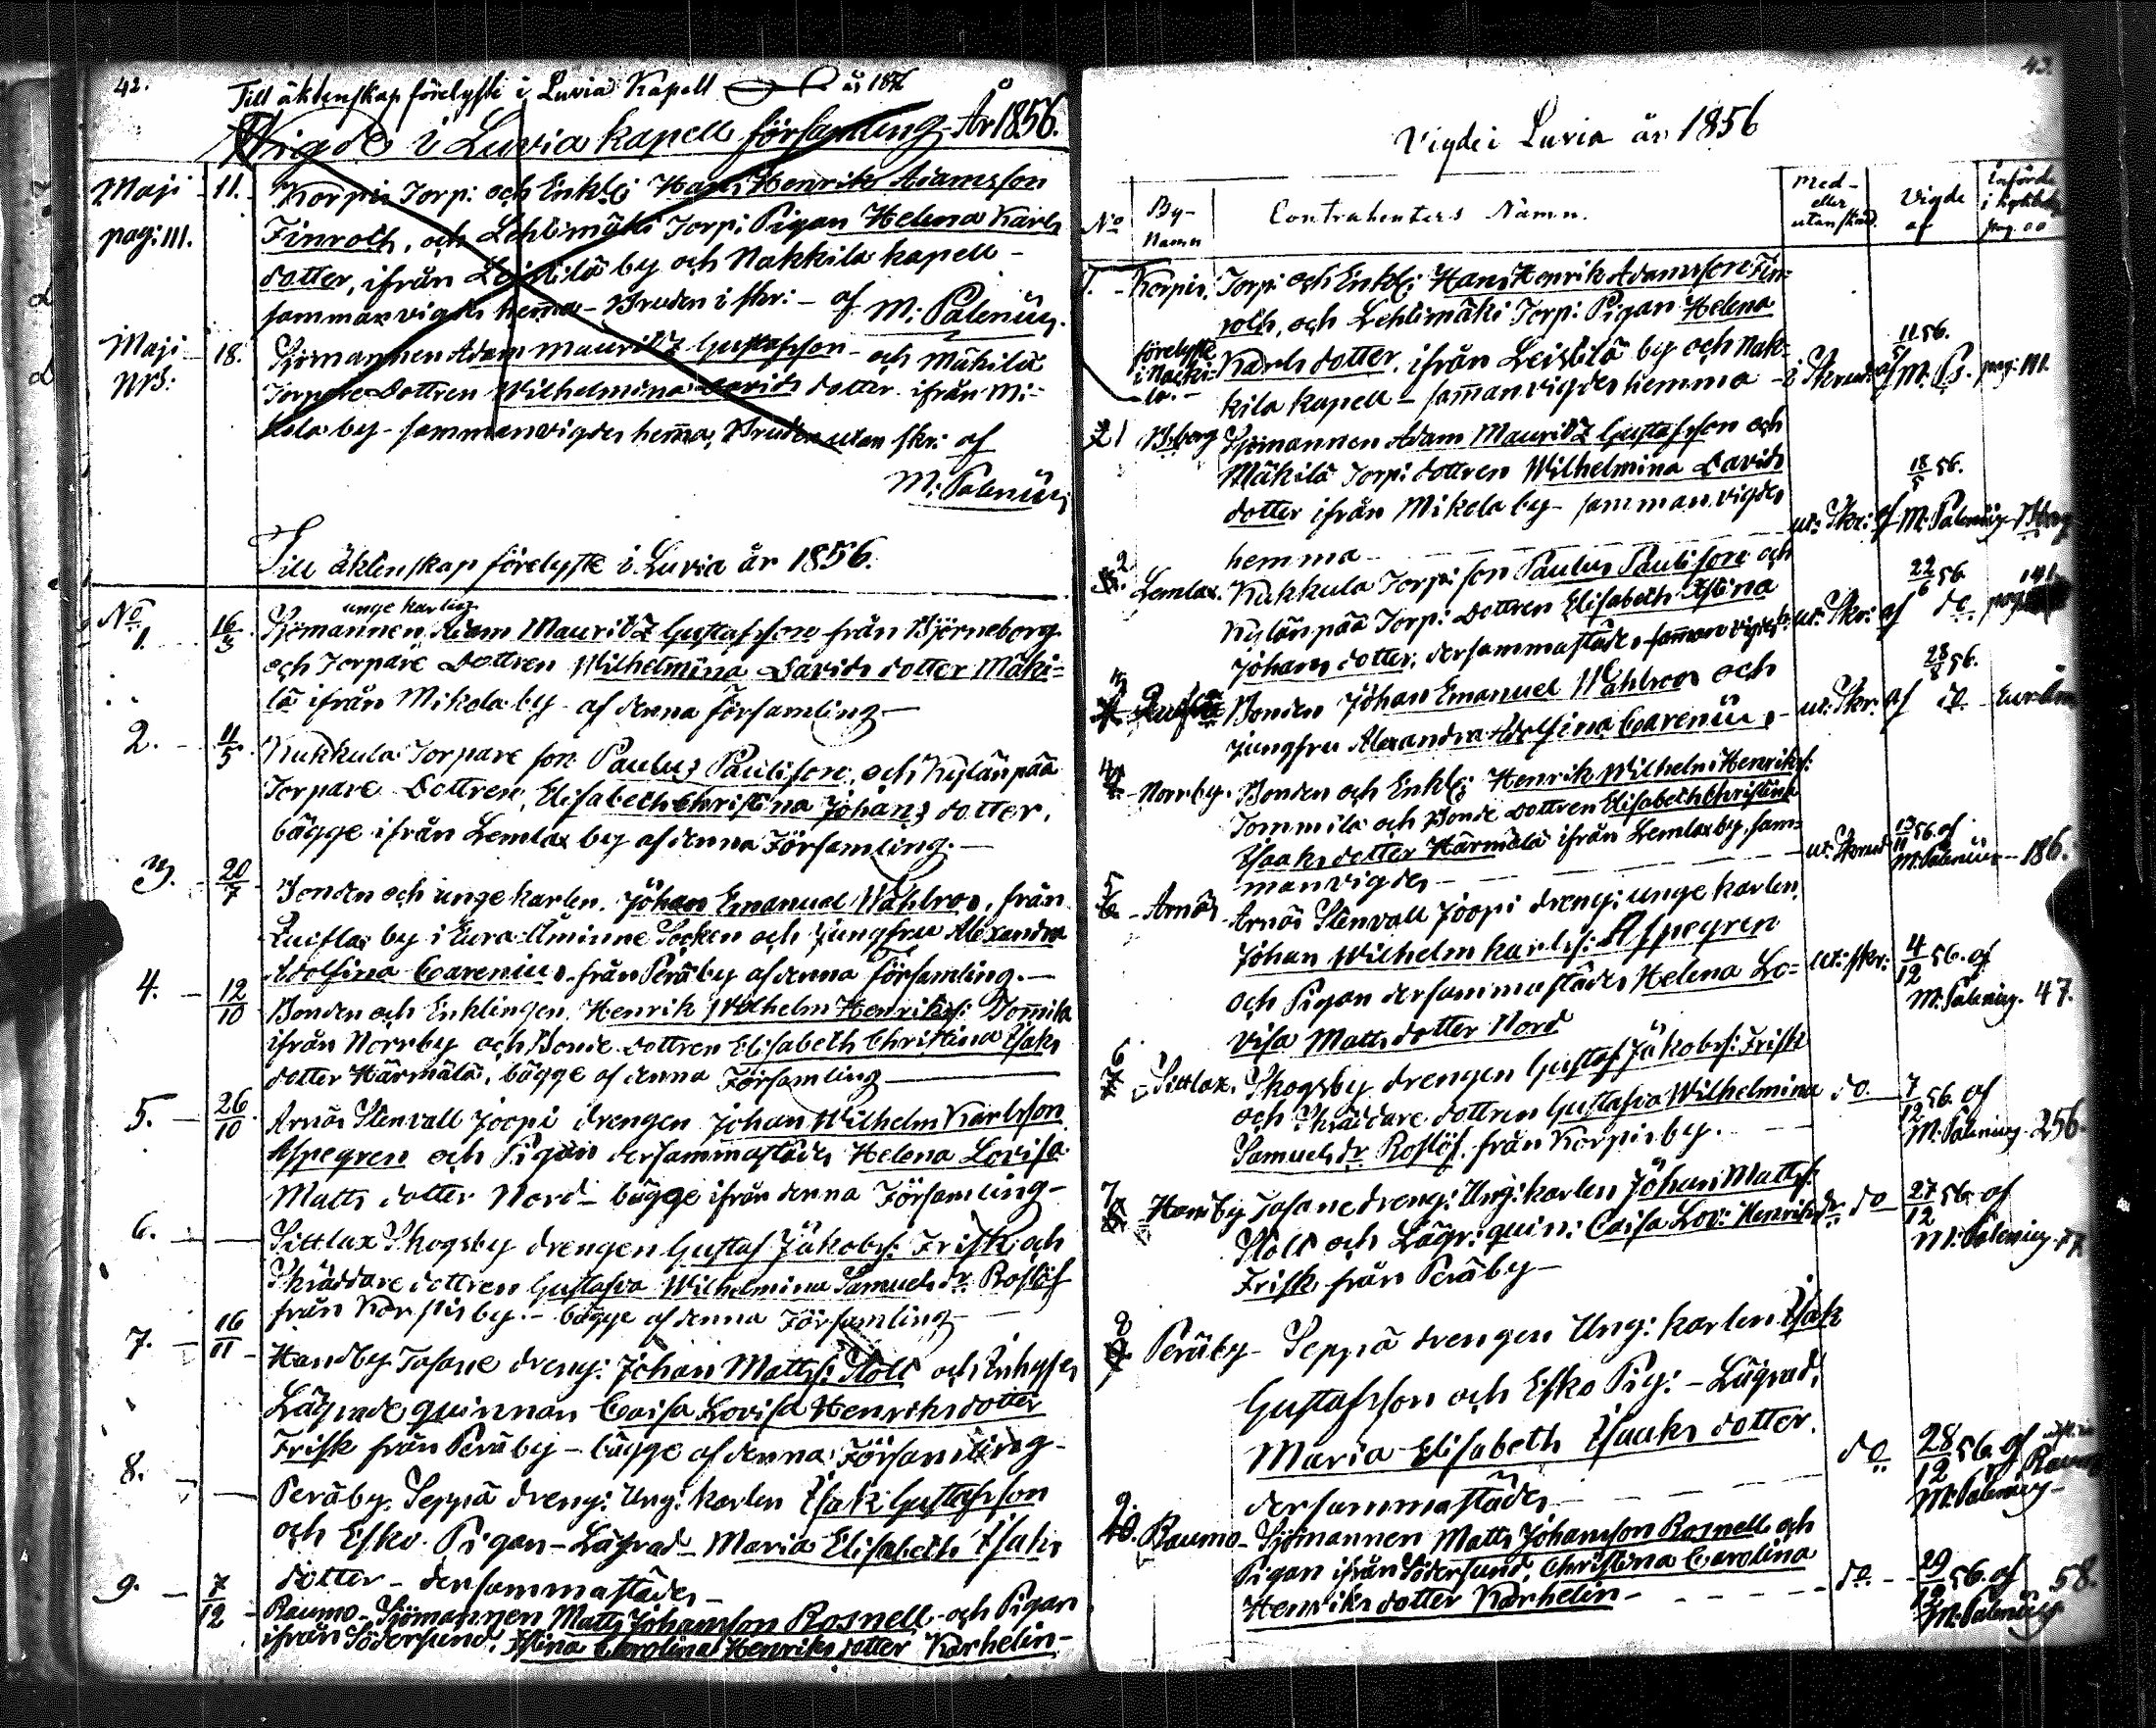 42.
Till äktenskap förelyste i Luvia Kapell år 1856
Vigde i Luvia kapell församling År 1856.
Maji 11. Korpis Torp: och Enkl: Hans Henrik Adamsson
pag: 111. Finroth, och Lehtimäki Torp: Pigan Helena Karls
dotter, ifrån Leistilä by och Nakkila kapell -
samman vigdes hema - Bruden i skr: - af M: Palenius.
Maji 18. Sjömannen Adam Mauritz Gustafsson - och Mäkilä
Torpare Dottren Wilhelmina Davids dotter ifrån Mi-
kola by - sammanvigdes hema, Bruden utan skr: af
M: Palenius
Till äktenskap förelyste i Luvia år 1856.
No
unge karlen
1. 16/3 Sjömannen Adam Mauritz Gustafsson från Björneborg
och Torpare Dottren Wilhelmina Davids dotter Mäki-
lä ifrån Mikola by - af denna församling -
2. - 11/5. Kukkula Torpare son Paulus Paulisson, och Kylänpää
Torpare Dottren, Elisabeth Christina Johans dotter,
bägge ifrån Lemlax by af denna Församling. -
3. - 20/7 Bonden och unge karlen. Johan Emanuel Wahlroos, från
by i Eura-Åminne Socken och Jungfru Alexandra
Adolfina Carenius från Peräby af denna församling. -
4. - 12/10 Bonden och Enklingen, Henrik Wilhelm Henriks: Tommila
ifrån Norrby och Bonde dottren Elisabeth Christina Isaks
dotter Härmälä, bägge af denna Församling -
5. - 26/10. Arnäs Stenvall Joopi drengen Johan Wilhelm Karlsson
Aspegren och Pigan dersammastädes Helena Lovisa
Matts dotter Nord - bägge ifrån denna Församling -
6. - Sittlax Skogsby drengen Gustaf Jakobs: Frisk och
Skräddare dottren Gustafva Wilhelmina Samuels dr Roslöf
från Korpis by. - bägge af denna Församling -
7. - 16/11 - Handby Tasane dreng: Johan Matts: Stolt och Inhyses
Lägrade quinnan Caisa Lovisa Henriksdotter
Frisk från Peräby - bägge af denna Församling -
8. - Peräby. Seppä dreng: Ung: karlen Isak Gustafsson
och Esko Pigan - Lägrad - Maria Elisabeth Isaks
dotter - dersammastädes -
9. - 7/12 - Raumo - Sjömannen Matts Johansson Rosnell - och Pigan
ifrån Södersund, Stina Carolina Henriks dotter Karhelin -
43.
Vigde i Luvia år 1856
No By-Namn Contrahenters Namn. Med- eller utan skrud. Vigde af Införde i pag. 00
1. - Korpis. Torp: och Enkl: Hans Henrik Adamsson Fin-
roth, och Lehtimäki Torp: Pigan Helena
förelyste i Nakki- la. - Karls dotter, ifrån Leistilä by och Nak- 11/5 56.
kila kapell - samman vigdes hemma - i Skrud. af M. Ps. pag. 111.
21 B:borg Sjömannen Adam Mauritz Gustafsson och
Mäkilä Torp: dottren Wilhelmina Davids 18/5 56.
dotter ifrån Mikola by - samman vigdes
hemma - ut: Skr: af M: Palenius B:borg
2 Lemlax. Kukkula Torp: son Paulus Paulisson och 22/6 56 141
Kylänpää Torp: Dottren Elisabeth Stina
Johans dotter, dersammastädes samman vigdes ut: Skr: af do pag
3 Bonden Johan Emanuel Wahlroos och 28/8 56.
Jungfru Alexandra Adolfina Carenius - ut: Skr. af do - Eura Åm
4 - Norrby. Bonden och Enkl: Henrik Wilhelm Henriks:
Tommila och Bonde Dottren Elisabeth Christina
Isaks dotter Härmälä ifrån Lemlax by, sam-
manvigdes - ut: Skrud 13/11 56. af M: Palenius - 186.
5 - Arnäs. Arnäs Stenvall Joopi dreng: unge karlen
Johan Wilhelm Karls: Aspegren
och Pigan dersammastädes Helena Lo- ut: skr: 4/12 56. af
visa Matts dotter Nord M: Palenius. 47.
6 Sittlax. Skogsby drengen Gustaf Jakobs: Frisk
och Skräddare dottren Gustafva Wilhelmina do 7/12 56. af
Samuels dr Roslöf. från Korpis by. - M: Palenius. 256
7 Handby Tasane dreng: Ung: karlen Johan Matts:
Stolt och Lägr: quin: Caisa Lov: Henriks dr do 27/12 56 af
Frisk, från Peräby - M: Palenius. 77
8 Peräby - Seppä drengen Ung: karlen Isak
Gustafsson och Esko Pig: - Lägrad,
Maria Elisabeth Isaaks dotter.
dersammastädes - do 28/12 56. af M: Palenius - Raumo
9. Raumo - Sjömannen Matts Johansson Rosnell och
Pigan ifrån Södersund, Christina Carolina
Henriks dotter Karhelin - do - 29/12 56. af M: Palenius 58.